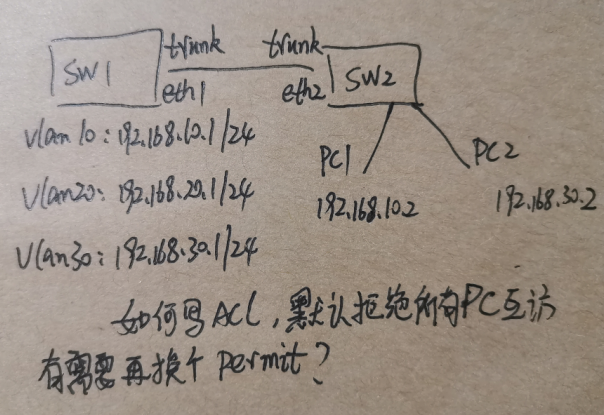 trunk trunk
SW1 SW2
eth1 eth2
Vlan10: 192.168.10.1/24
PC1 PC2
Vlan20: 192.168.20.1/24
192.168.10.2 192.168.30.2
Vlan30: 192.168.30.1/24
如何写ACL,默认拒绝所有PC互访
有需要再挨个permit?